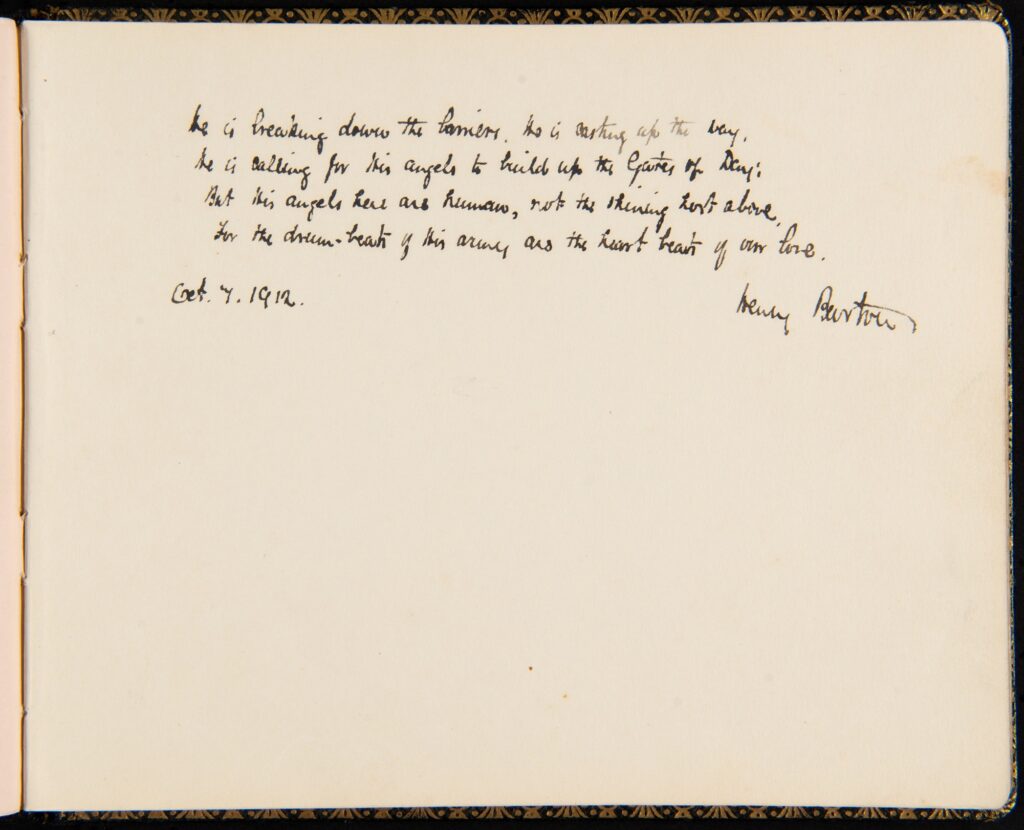 He is breaking down the barriers, He is casting up the way,
He is calling for His angels to build up the Gates of Day:
But His angels here are human, not the shining host above,
For the drum-beats of His army are the heart beats of our love.
Oct. 7. 1912.
Henry Burton